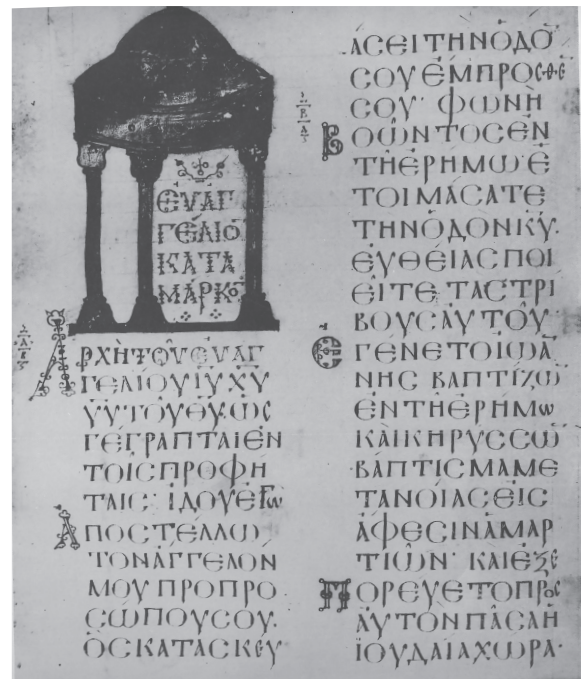 ΕΥΑΓ
ΓΕΛΙΟ
ΚΑΤΑ
ΜΑΡΚΟ
ΑΡΧΗΤΟΥΕΥΑΓ
ΓΕΛΙΟΥΙΥΧΥ
ΥΥΤΟΥΘΥΩΣ
ΓΕΓΡΑΠΤΑΙΕΝ
ΤΟΙΣΠΡΟΦΗ
ΤΑΙΣ·ΙΔΟΥΕΓΩ
ΑΠΟΣΤΕΛΛΩ
ΤΟΝΑΓΓΕΛΟΝ
ΜΟΥΠΡΟΠΡΟ
ΣΩΠΟΥΣΟΥ·
ΟΣΚΑΤΑΣΚΕΥ
ΑΣΕΙΤΗΝΟΔΟ
ΣΟΥΕΜΠΡΟΣΘΕ
ΣΟΥ·ΦΩΝΗ
ΒΟΩΝΤΟΣΕΝ
ΤΗΕΡΗΜΩ·Ε
ΤΟΙΜΑΣΑΤΕ
ΤΗΝΟΔΟΝΚΥ·
ΕΥΘΕΙΑΣΠΟΙ
ΕΙΤΕΤΑΣΤΡΙ
ΒΟΥΣΑΥΤΟΥ·
ΕΓΕΝΕΤΟΙΩΑ
ΝΗΣΒΑΠΤΙΖΩ
ΕΝΤΗΕΡΗΜΩ
ΚΑΙΚΗΡΥΣΣΩ
ΒΑΠΤΙΣΜΑΜΕ
ΤΑΝΟΙΑΣΕΙΣ
ΑΦΕΣΙΝΑΜΑΡ
ΤΙΩΝ·ΚΑΙΕΞΕ
ΠΟΡΕΥΕΤΟΠΡΟΣ
ΑΥΤΟΝΠΑΣΑΗ
ΙΟΥΔΑΙΑΧΩΡΑ·